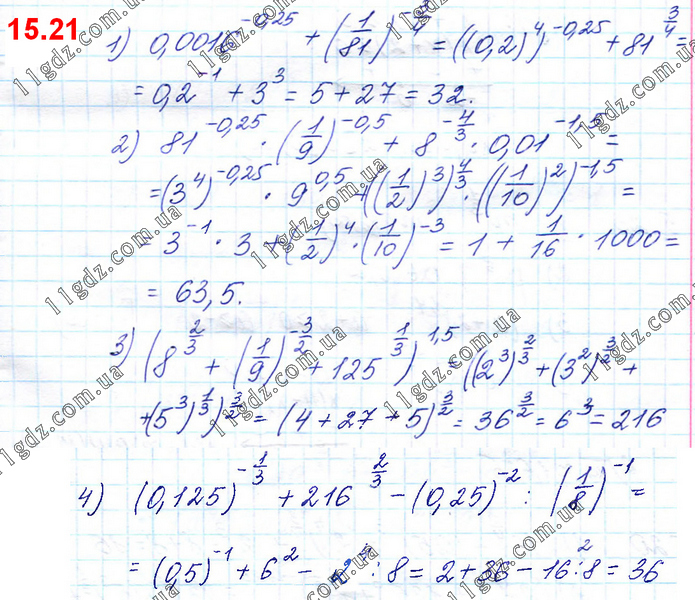 15.21
1) 0,0016^{-0,25} + (1/81)^{-3/4} = ((0,2)^4)^{-0,25} + 81^{3/4} =
= 0,2^{-1} + 3^3 = 5 + 27 = 32.
2) 81^{-0,25} · (1/9)^{-0,5} + 8^{-4/3} · 0,01^{-1,5} =
= (3^4)^{-0,25} · 9^{0,5} + ((1/2)^3)^{4/3} · ((1/10)^2)^{-1,5} =
= 3^{-1} · 3 + (1/2)^4 · (1/10)^{-3} = 1 + 1/16 · 1000 =
= 63,5.
3) (8^{2/3} + (1/9)^{-3/2} + 125^{1/3})^{1,5} = ((2^3)^{2/3} + (3^2)^{3/2} +
+ (5^3)^{1/3})^{3/2} = (4 + 27 + 5)^{3/2} = 36^{3/2} = 6^3 = 216
4) (0,125)^{-1/3} + 216^{2/3} - (0,25)^{-2} : (1/8)^{-1} =
= (0,5)^{-1} + 6^2 - : 8 = 2 + 36 - 16 : 8 = 36
11gdz.com.ua